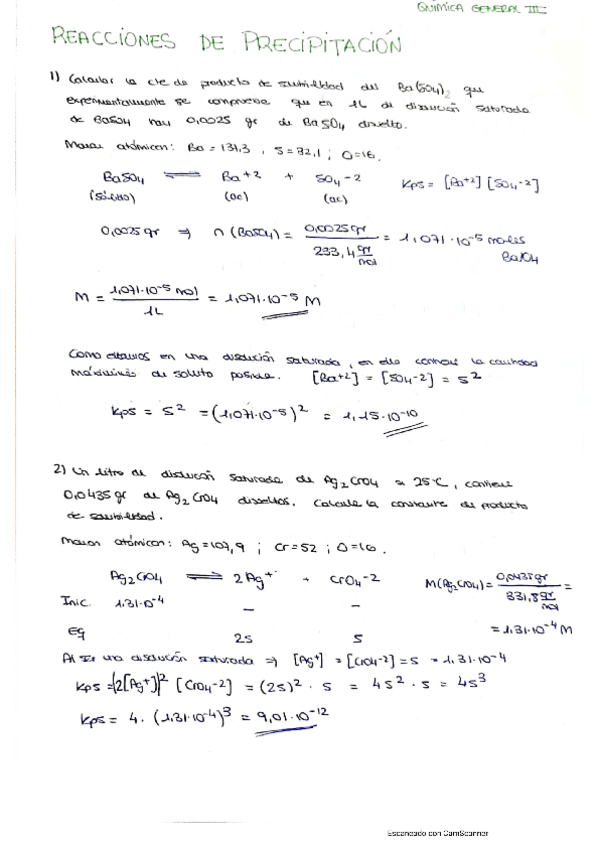 QUÍMICA GENERAL III
REACCIONES DE PRECIPITACIÓN
1) Calcular la cte de producto de solubilidad del Ba(SO4)2 que
experimentalmente se comprueba que en 1L de disolución saturada
de BaSO4 hay 0,0025 gr de BaSO4 disuelto.
Masas atómicas: Ba = 137,3 , S = 32,1 ; O=16.
BaSO4 ⇌ Ba+2 + SO4-2 Kps = [Ba+2] [SO4-2]
(sólido) (ac) (ac)
0,0025 gr ⇒ n (BaSO4) = 0,0025 gr / 233,4 gr/mol = 1,071·10-5 moles BaSO4
M = 1,071·10-5 mol / 1L = 1,071·10-5 M
Como estamos en una disolución saturada, en ella la cantidad
de soluto posible. [Ba+2] = [SO4-2] = s2
Kps = s2 = (1,071·10-5)2 = 1,15·10-10
2) Un litro de disolución saturada de Ag2CrO4 a 25ºC, contiene
0,0435 gr de Ag2CrO4 disueltos. Calcule la constante de producto
de solubilidad.
Masas atómicas: Ag = 107,9 ; Cr = 52 ; O=16.
Ag2CrO4 ⇌ 2Ag+ + CrO4-2 M(Ag2CrO4) = 0,0435 gr / 331,8 gr/mol =
Inic. 1.31·10-4 – – = 1.31·10-4 M
Eq 2s s
Al una disolución saturada ⇒ [Ag+] = [CrO4-2] = s = 1.31·10-4
Kps = (2[Ag+])2 [CrO4-2] = (2s)2 · s = 4s2 · s = 4s3
Kps = 4 · (1.31·10-4)3 = 9,01·10-12
Escaneado con CamScanner